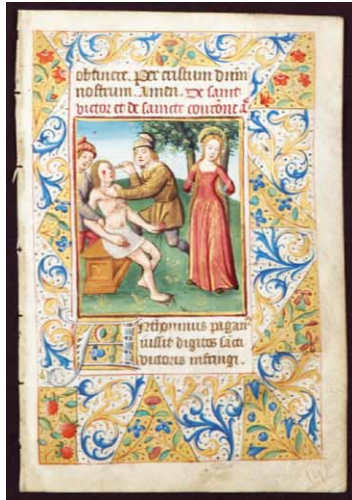 obtinere. Per cristum dnm
nostrum. Amen. De saint
victor et de saincte couronē a͞
Anthonius pagan
iussit digitos sācti
victoris infringi.